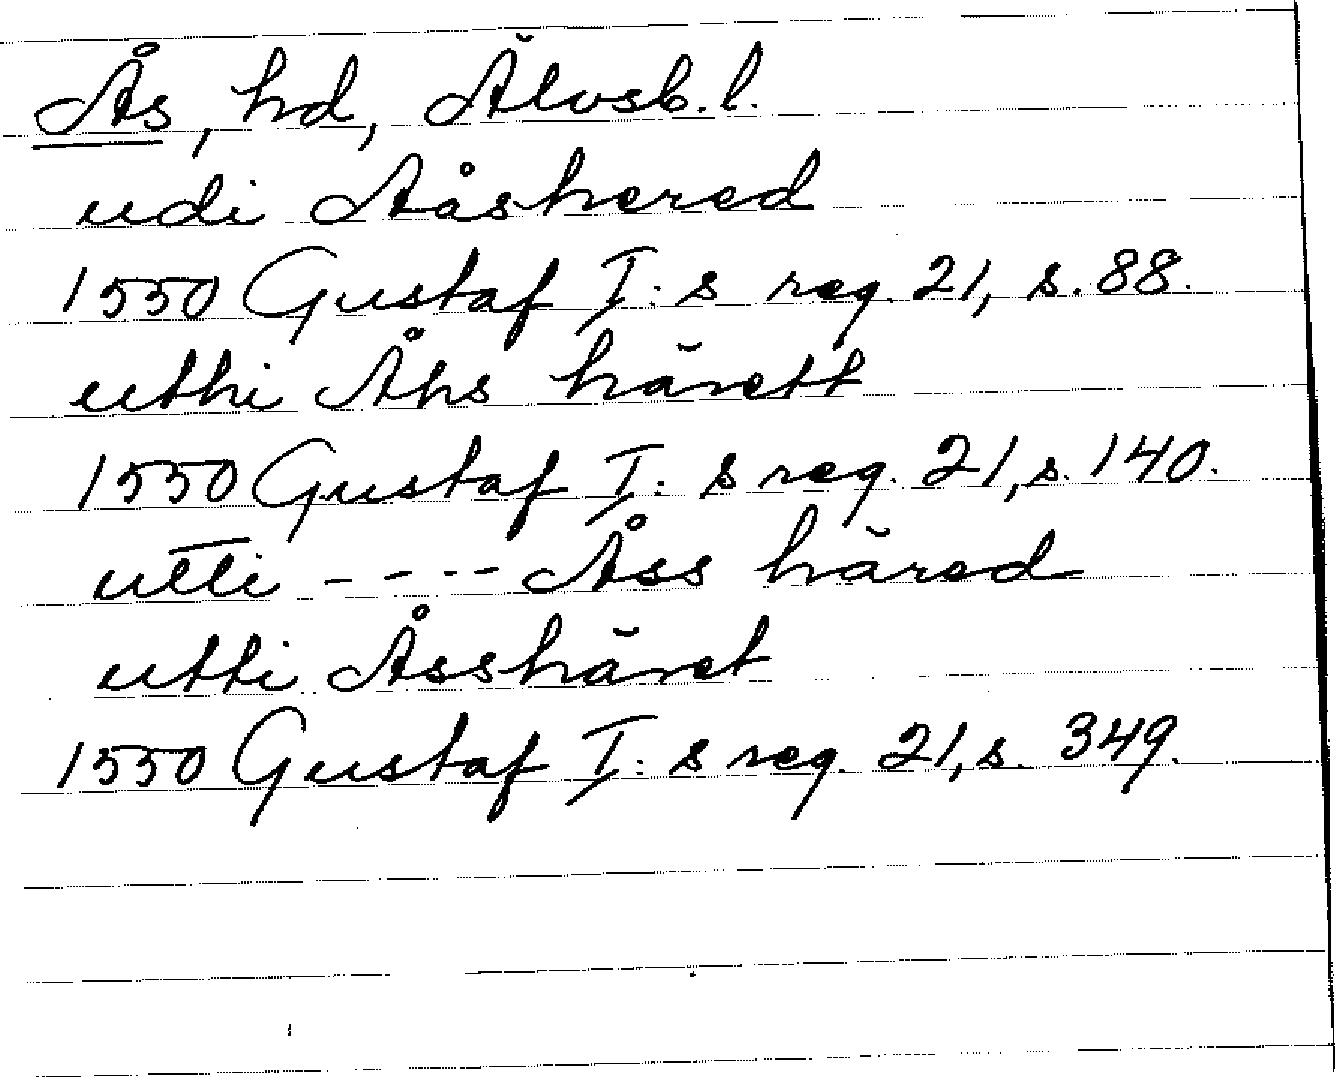 Ås, hd, Älvsb. l.
udi Aåshered
1550 Gustaf I:s reg. 21, s. 88.
uthi Åhs härett
1550 Gustaf I:s reg. 21, s. 140.
utti - - - - Åss härad
utti Åsshäret
1550 Gustaf I:s reg. 21, s. 349.